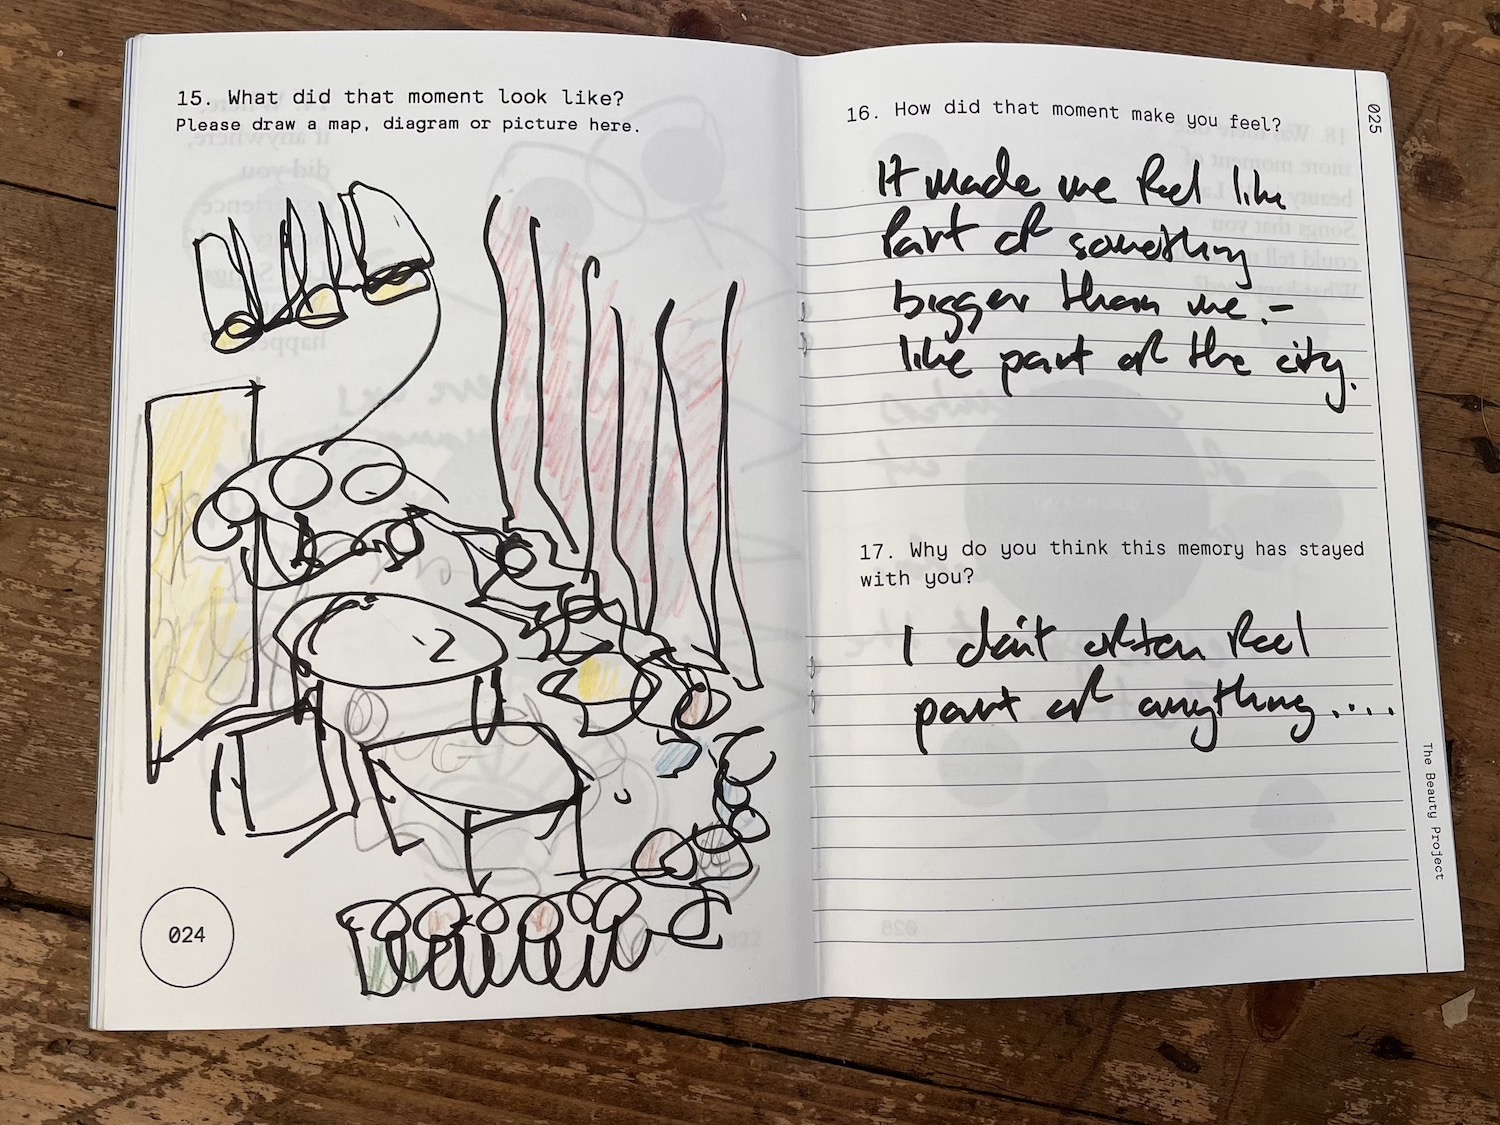 15. What did that moment look like?
Please draw a map, diagram or picture here.
024
16. How did that moment make you feel?
It made me feel like
part of something
bigger than me. –
like part of the city.
17. Why do you think this memory has stayed
with you?
I don't often feel
part of anything....
025
The Beauty Project